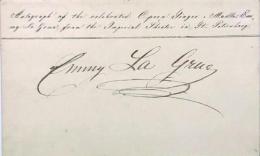 Autograph of the celebrated Opera Singer, Madlle Em=
my La Grua, from the Imperial Theater in St. Petersburg.
Emmy La Grua